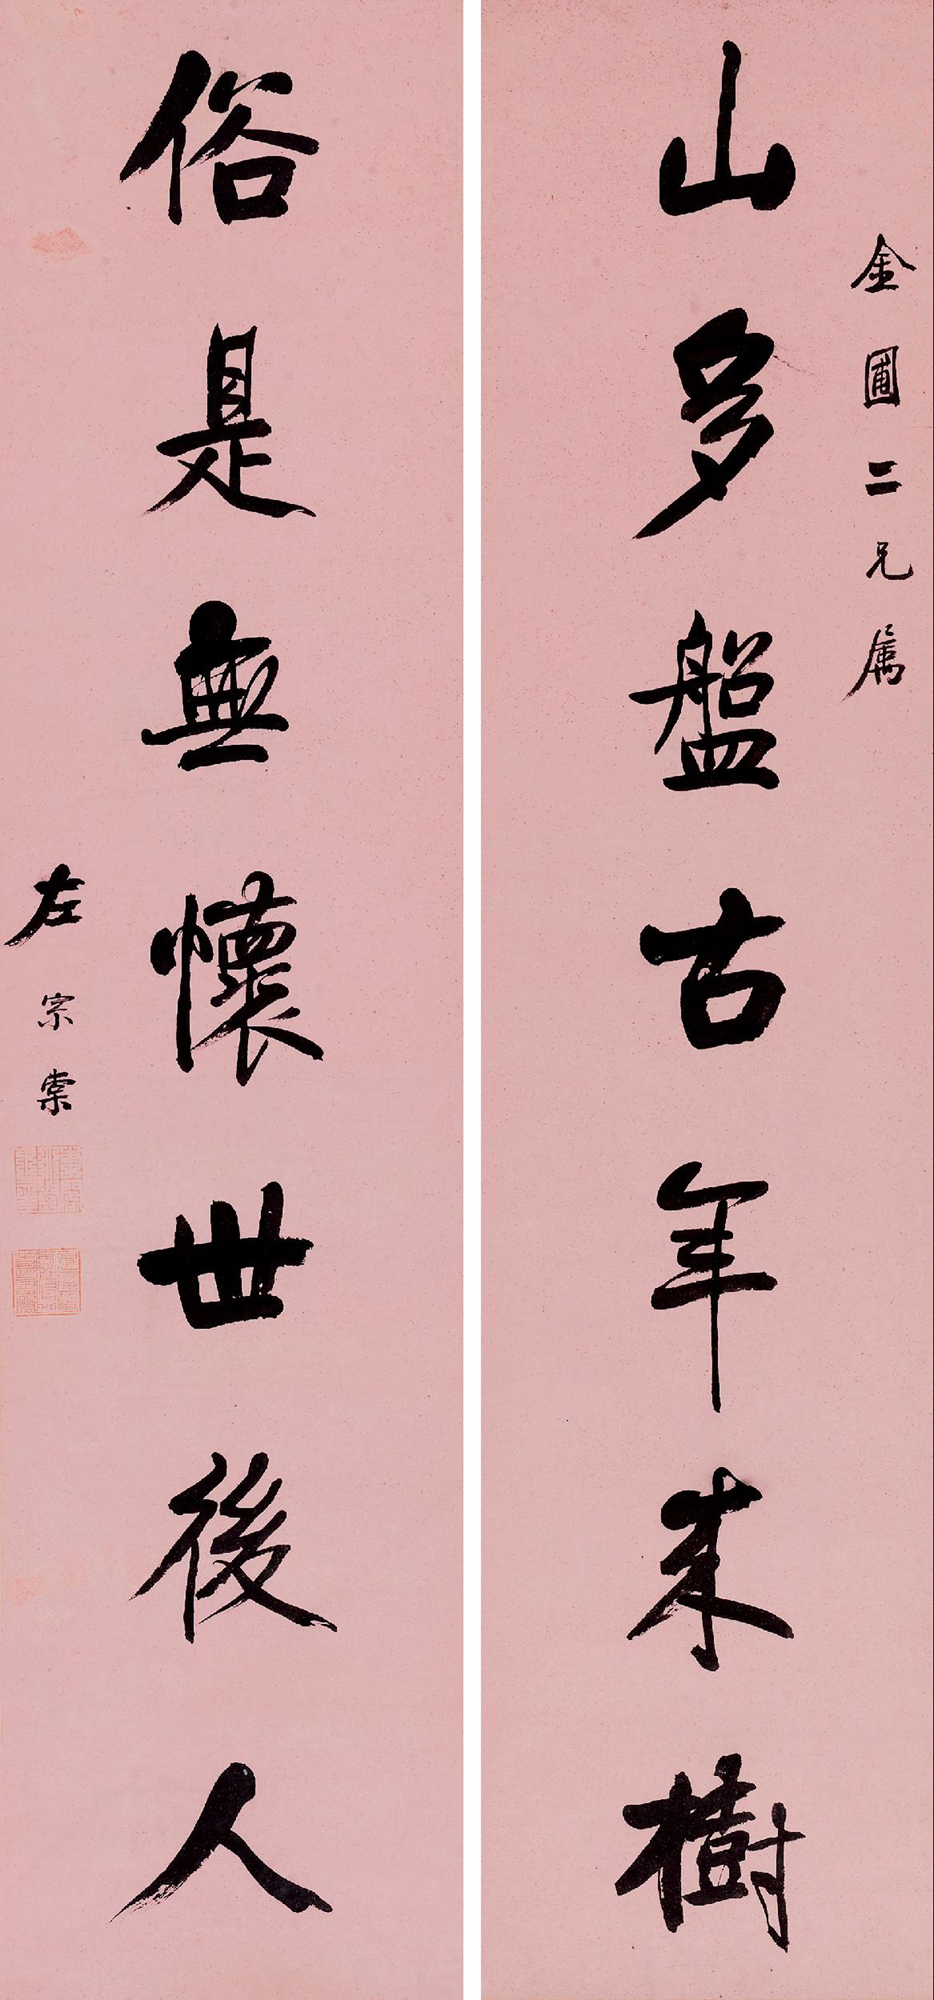 金圃二兄属
山多盤古年来樹
俗是無懷世後人
左宗棠